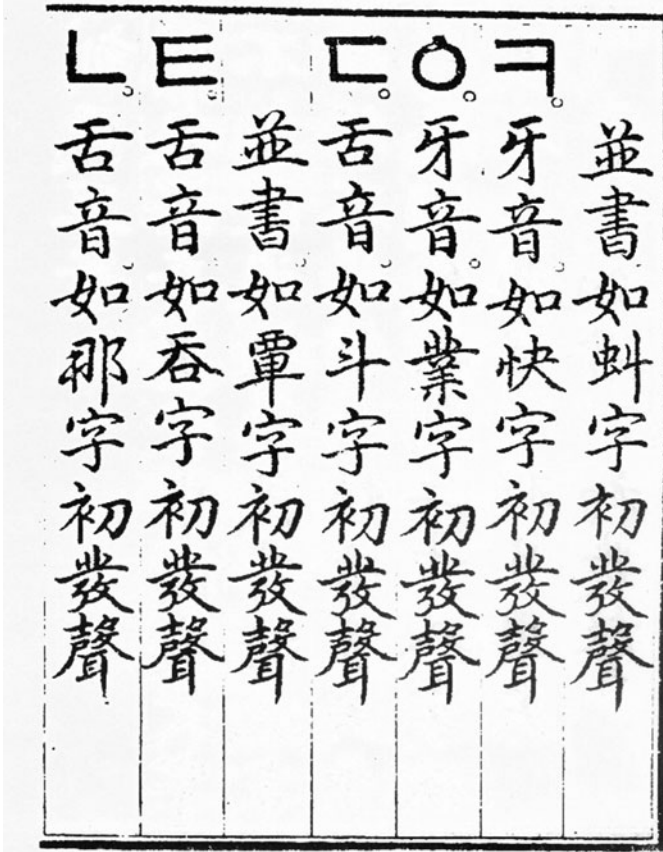 並書如虯字初發聲
ㅋ。牙音如快字初發聲
ㆁ。牙音。如業字初發聲
ㄷ。舌音。如斗字初發聲
並書。如覃字初發聲
ㅌ。舌音。如呑字初發聲
ㄴ。舌音。如那字初發聲